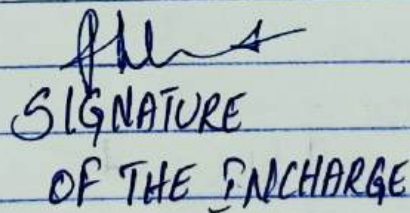 SIGNATURE
OF THE INCHARGE